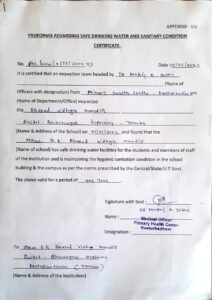 APPENDIX - VIII
PROFORMA REGARDING SAFE DRINKING WATER AND SANITARY CONDITION
CERTIFICATE
No.
Dated:
It is certified that an inspection team headed by Dr
(Name of
Officers with designation) from Primary health centre
(Name of Department/Office) inspected
the Bharad vidhya mandir
Bhavnagar highway
(Name & Address of the School) on and found that the
Bharad vidhya mandir
(Name of school) has safe drinking water facilities for the students and members of staff
of the institution and is maintaining the hygienic sanitation condition in the school
building & the campus as per the norms prescribed by the Central/State/U.T Govt.
The above valid for a period of one year
Signature with Seal :
Name :
Medical Officer
Primary Health Center
Kasturbadham
Designation :
To
Bharad vidhya mandir
Bhavnagar highway
(Name & Address of the Institution)